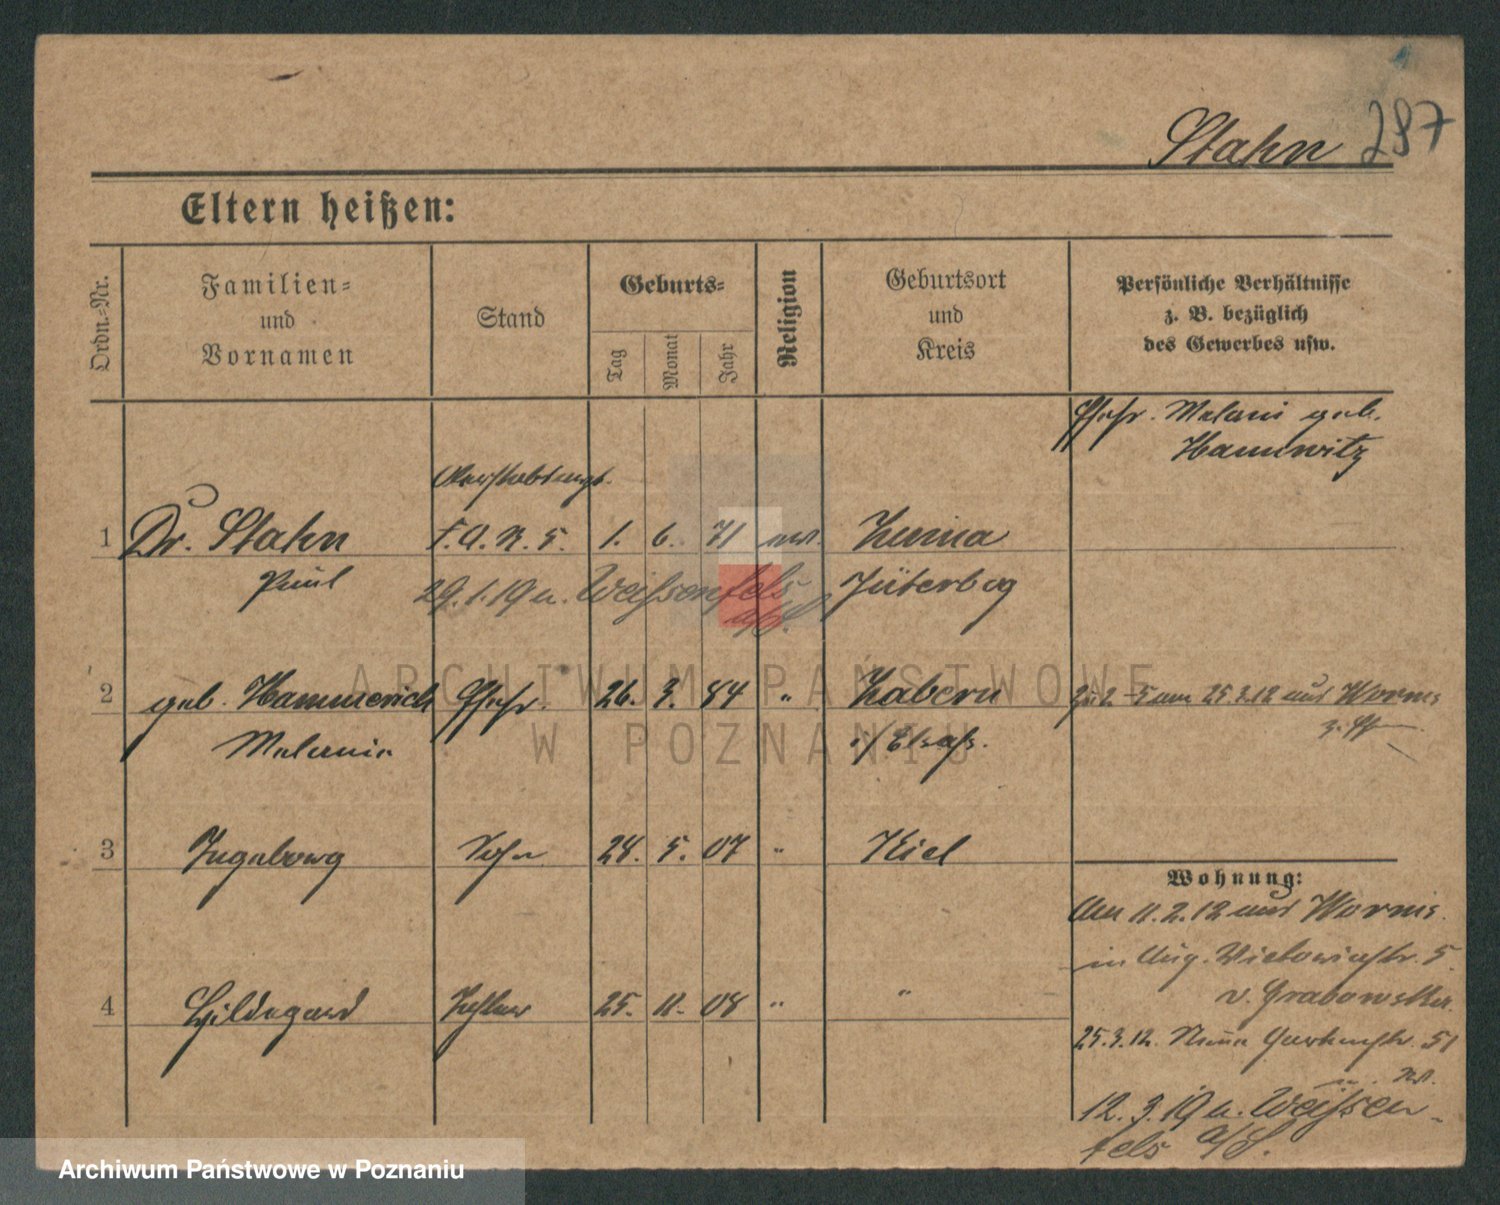 Stahn 287
Eltern heißen:
Ordn.=Nr.
Familien=
und
Vornamen
Stand
Geburts=
Tag
Monat
Jahr
Religion
Geburtsort
und
Kreis
Persönliche Verhältnisse
z. B. bezüglich
des Gewerbes usw.
Ehefr. Melani geb.
1 Dr. Stahn F.A.R. 5. 1. 6. 71 Zinna
Paul 29.1.19 n. Weißenfels Jüterbog
a/S.
2 geb. Hammerich Ehefr. 26. 3. 84 " Zabern
Melanie i/Elsaß.
Zu 2–5 am 25.3.12 aus Worms
3 Ingeborg 28. 5. 07 " Kiel
4 Hildegard Tochter 25. 11. 08 " "
Wohnung:
Am 11.2.12 aus Worms
in Aug. Viktoriastr. 5
v. Grabowska
25.3.12. Neue Gartenstr. 51
12.3.19 n. Weißen-
fels a/S.
ARCHIWUM PAŃSTWOWE
W POZNANIU
Archiwum Państwowe w Poznaniu